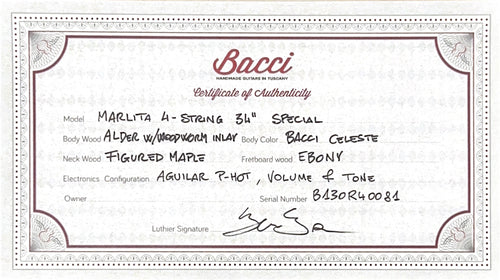 Bacci
HANDMADE GUITARS IN TUSCANY
Certificate of Authenticity
Model MARLITA 4-STRING 34" SPECIAL
Body Wood ALDER W/WOODWORM INLAY Body Color BACCI CELESTE
Neck Wood FIGURED MAPLE Fretboard wood EBONY
Electronics Configuration AGUILAR P-HOT, VOLUME & TONE
Owner Serial Number B130R40081
Luthier Signature